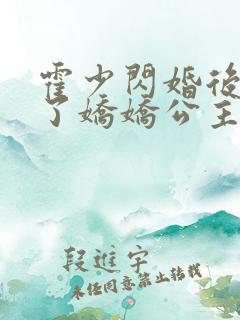 霍少閃婚後
了嬌嬌公主
段進宇
未經同意禁止轉載